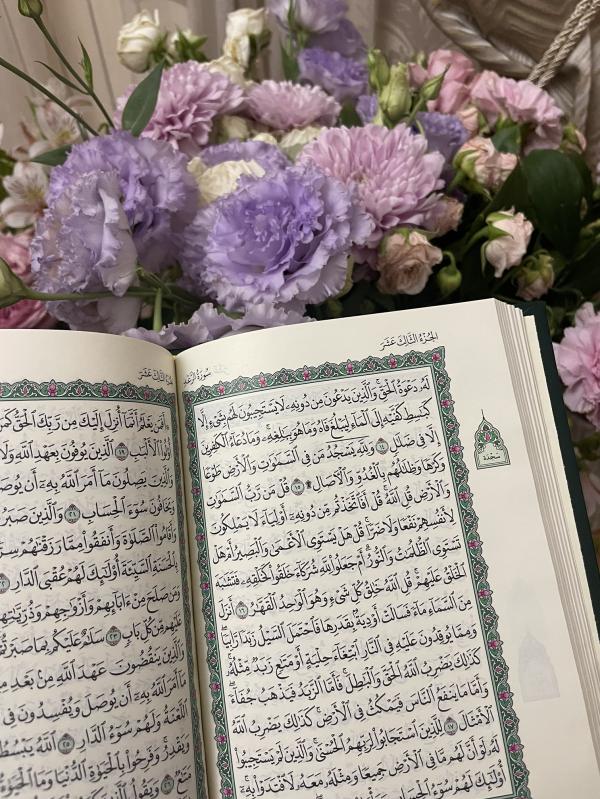 الجُزْءُ الثَّالِثَ عَشَرَ
سُورَةُ الرَّعْدِ
لَهُۥ دَعْوَةُ ٱلْحَقِّ وَٱلَّذِينَ يَدْعُونَ مِن دُونِهِۦ لَا يَسْتَجِيبُونَ لَهُم بِشَىْءٍ إِلَّا
كَبَٰسِطِ كَفَّيْهِ إِلَى ٱلْمَآءِ لِيَبْلُغَ فَاهُ وَمَا هُوَ بِبَٰلِغِهِۦ وَمَا دُعَآءُ ٱلْكَٰفِرِينَ
إِلَّا فِى ضَلَٰلٍ ١٤ وَلِلَّهِ يَسْجُدُ مَن فِى ٱلسَّمَٰوَٰتِ وَٱلْأَرْضِ طَوْعًا
وَكَرْهًا وَظِلَٰلُهُم بِٱلْغُدُوِّ وَٱلْءَاصَالِ ۩ ١٥ قُلْ مَن رَّبُّ ٱلسَّمَٰوَٰتِ
وَٱلْأَرْضِ قُلِ ٱللَّهُ قُلْ أَفَٱتَّخَذْتُم مِّن دُونِهِۦٓ أَوْلِيَآءَ لَا يَمْلِكُونَ
لِأَنفُسِهِمْ نَفْعًا وَلَا ضَرًّا قُلْ هَلْ يَسْتَوِى ٱلْأَعْمَىٰ وَٱلْبَصِيرُ أَمْ هَلْ
تَسْتَوِى ٱلظُّلُمَٰتُ وَٱلنُّورُ أَمْ جَعَلُوا۟ لِلَّهِ شُرَكَآءَ خَلَقُوا۟ كَخَلْقِهِۦ فَتَشَٰبَهَ
ٱلْخَلْقُ عَلَيْهِمْ قُلِ ٱللَّهُ خَٰلِقُ كُلِّ شَىْءٍ وَهُوَ ٱلْوَٰحِدُ ٱلْقَهَّٰرُ ١٦ أَنزَلَ
مِنَ ٱلسَّمَآءِ مَآءً فَسَالَتْ أَوْدِيَةٌۢ بِقَدَرِهَا فَٱحْتَمَلَ ٱلسَّيْلُ زَبَدًا رَّابِيًا
وَمِمَّا يُوقِدُونَ عَلَيْهِ فِى ٱلنَّارِ ٱبْتِغَآءَ حِلْيَةٍ أَوْ مَتَٰعٍ زَبَدٌ مِّثْلُهُۥ
كَذَٰلِكَ يَضْرِبُ ٱللَّهُ ٱلْحَقَّ وَٱلْبَٰطِلَ فَأَمَّا ٱلزَّبَدُ فَيَذْهَبُ جُفَآءً
وَأَمَّا مَا يَنفَعُ ٱلنَّاسَ فَيَمْكُثُ فِى ٱلْأَرْضِ كَذَٰلِكَ يَضْرِبُ ٱللَّهُ
ٱلْأَمْثَالَ ١٧ لِلَّذِينَ ٱسْتَجَابُوا۟ لِرَبِّهِمُ ٱلْحُسْنَىٰ وَٱلَّذِينَ لَمْ يَسْتَجِيبُوا۟
لَهُۥ لَوْ أَنَّ لَهُم مَّا فِى ٱلْأَرْضِ جَمِيعًا وَمِثْلَهُۥ مَعَهُۥ لَٱفْتَدَوْا۟ بِهِۦٓ
أُو۟لَٰٓئِكَ لَهُمْ سُوٓءُ ٱلْحِسَابِ
سجدة
الثَّالِثَ عَشَرَ
أَفَمَن يَعْلَمُ أَنَّمَآ أُنزِلَ إِلَيْكَ مِن رَّبِّكَ ٱلْحَقُّ
أُو۟لُوا۟ ٱلْأَلْبَٰبِ ١٩ ٱلَّذِينَ يُوفُونَ بِعَهْدِ ٱللَّهِ وَلَا
وَٱلَّذِينَ يَصِلُونَ مَآ أَمَرَ ٱللَّهُ بِهِۦٓ أَن يُوصَلَ
وَيَخَافُونَ سُوٓءَ ٱلْحِسَابِ ٢١ وَٱلَّذِينَ
وَأَقَامُوا۟ ٱلصَّلَوٰةَ وَأَنفَقُوا۟ مِمَّا رَزَقْنَٰهُمْ
بِٱلْحَسَنَةِ ٱلسَّيِّئَةَ أُو۟لَٰٓئِكَ لَهُمْ عُقْبَى ٱلدَّارِ
وَمَن صَلَحَ مِنْ ءَابَآئِهِمْ وَأَزْوَٰجِهِمْ
عَلَيْهِم مِّن كُلِّ بَابٍ ٢٣ سَلَٰمٌ عَلَيْكُم بِمَا
وَٱلَّذِينَ يَنقُضُونَ عَهْدَ ٱللَّهِ مِنۢ بَعْدِ
مَآ أَمَرَ ٱللَّهُ بِهِۦٓ أَن يُوصَلَ وَيُفْسِدُونَ فِى
ٱللَّعْنَةُ وَلَهُمْ سُوٓءُ ٱلدَّارِ ٢٥ ٱللَّهُ يَبْسُطُ
وَيَقْدِرُ وَفَرِحُوا۟ بِٱلْحَيَوٰةِ ٱلدُّنْيَا وَمَا
مَتَٰعٌ ٢٦ وَيَقُولُ